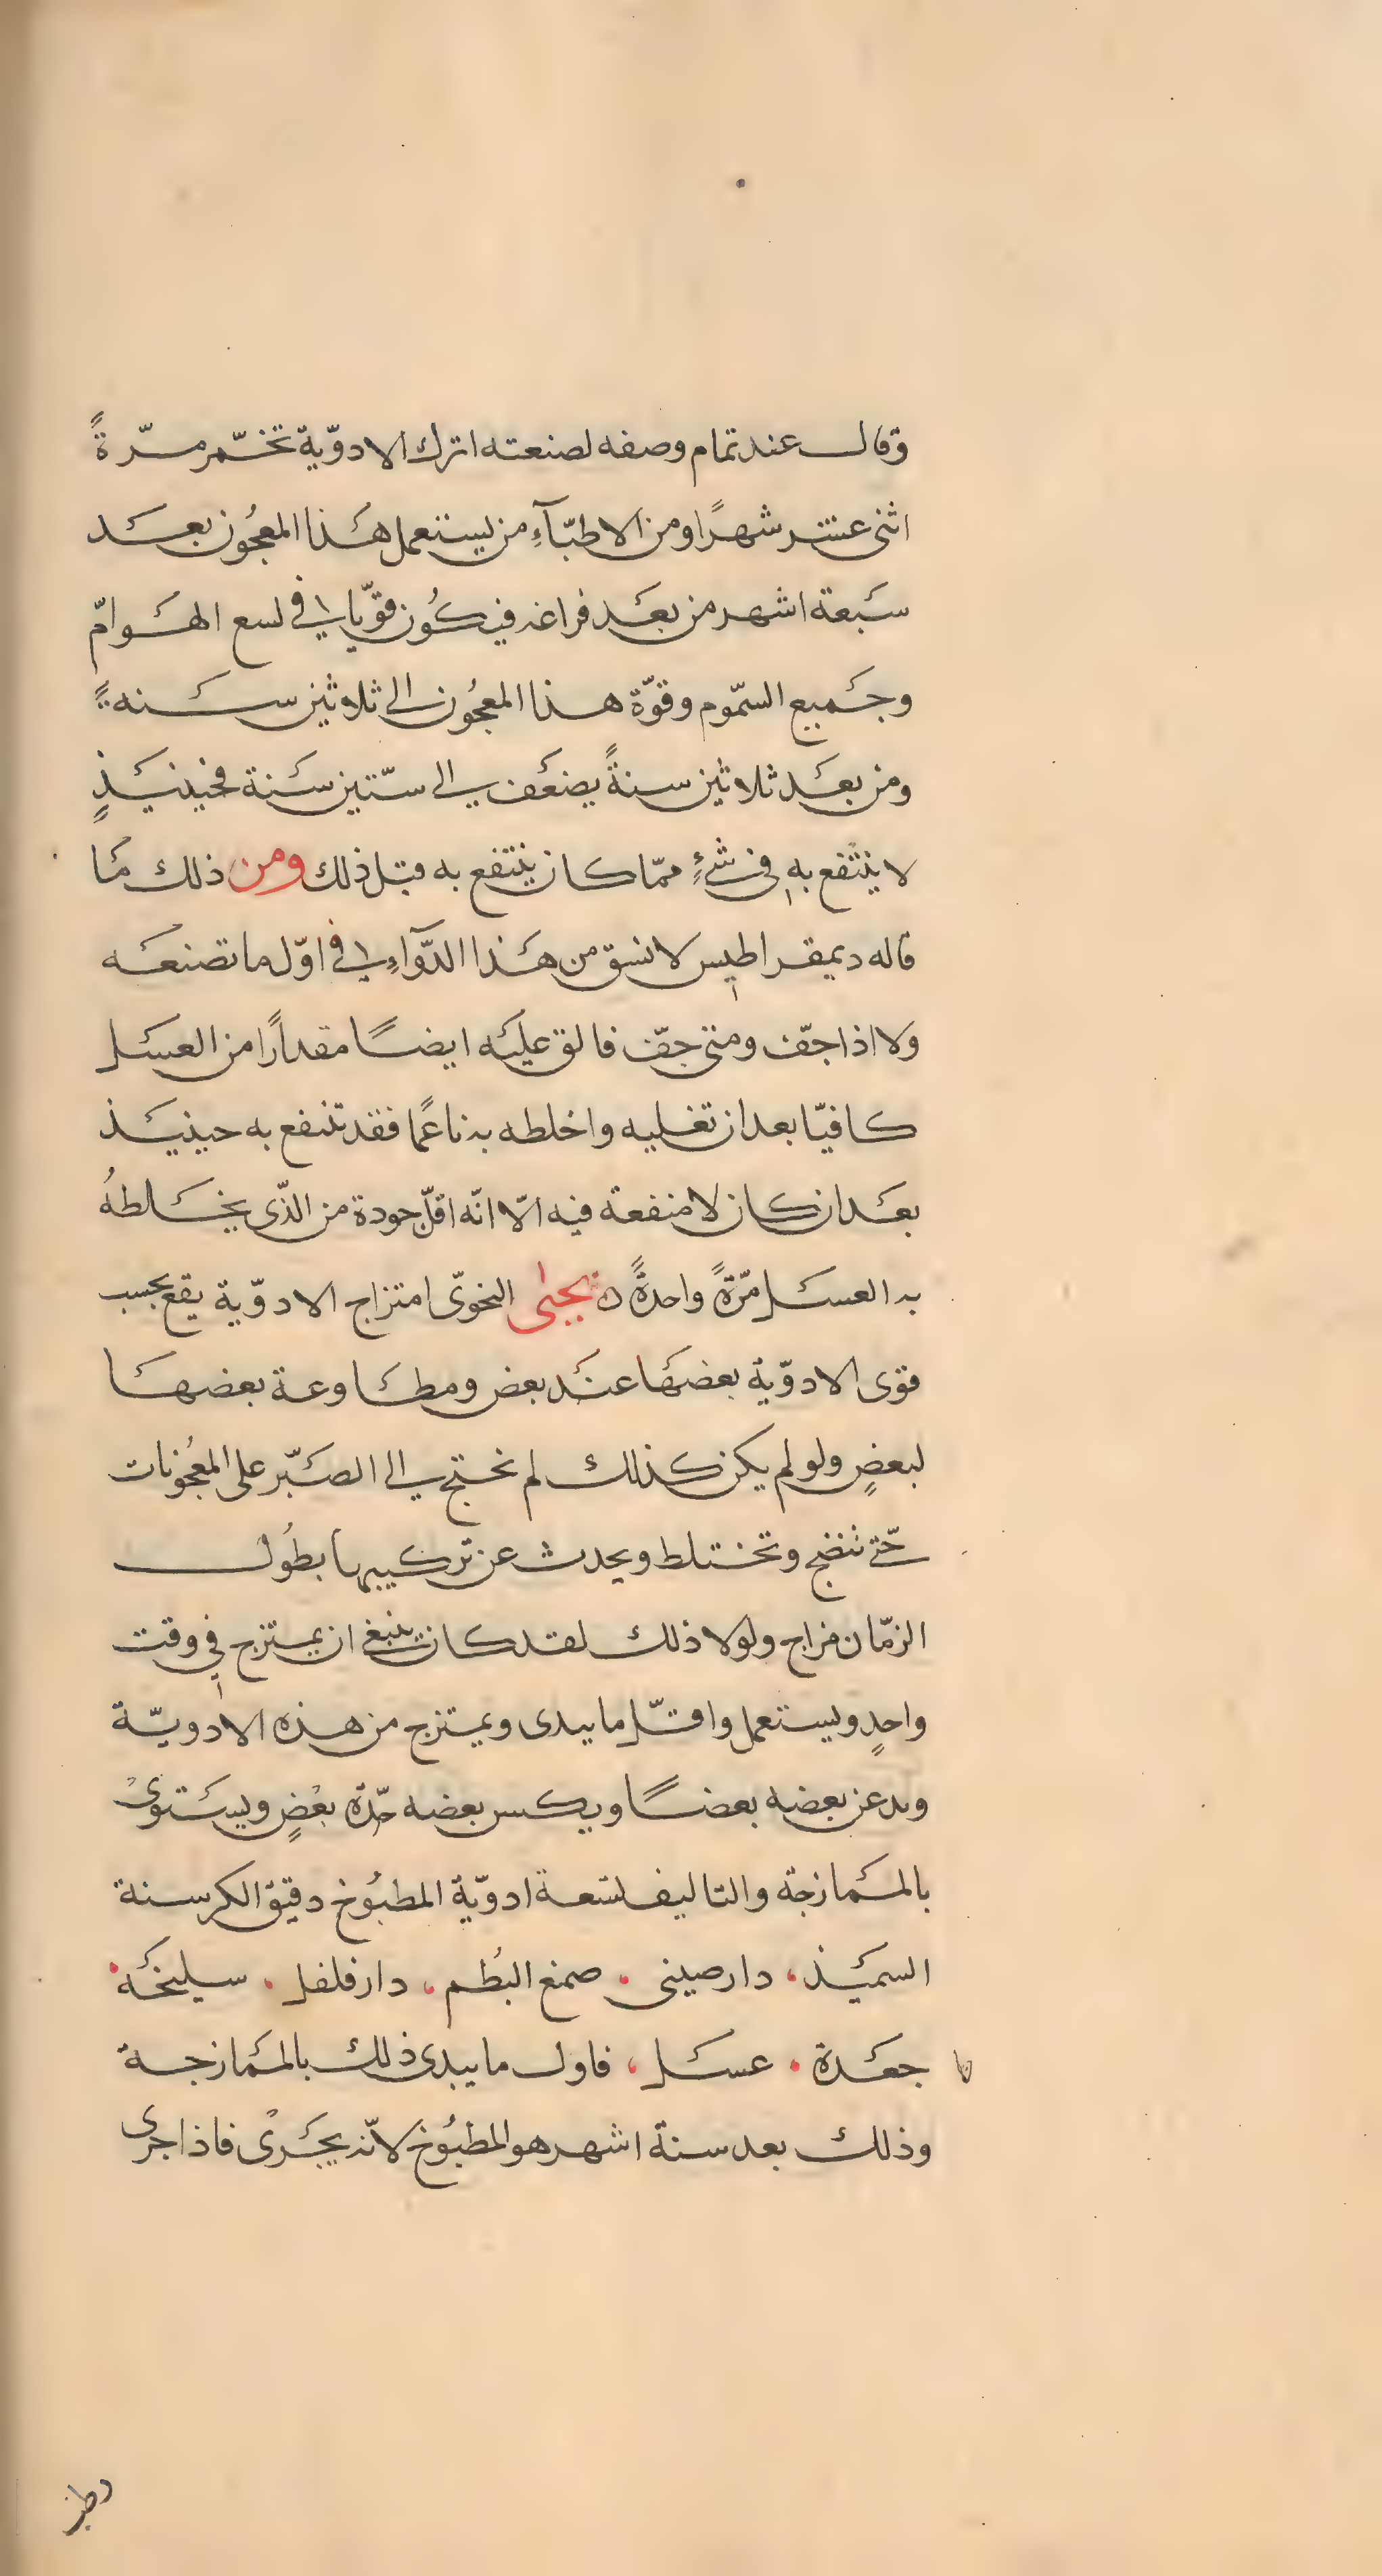 وقال عند تمام وصفه لصنعته اترك الادوّية تخمّر مرّةً
اثنى عشر شهرًا ومن الاطبّآءِ من يستعمل هَذا المعجُون بعَد
سَبعة اشهر من بعَد فراغه فيكُون قوّيا في لسع الهَوامّ
وجَميع السمّوم وقوّة هذا المعجُون الى ثلاثين سَنه
ومن بعَد ثلاثين سنةً يضعَف الى ستّين سَنة فحينئَذٍ
لا ينتفع به فى شئٍ ممّا كان ينتفع به قبل ذلك ومن ذلك مَا
قاله ديمقراطيس لا نسق من هَذا الدّوآءِ في اوّل ما تصنعَه
ولا اذا جفّ ومتى جفّ فالق عليَه ايضًا مقدارًا من العسَل
كافيّا بعد ان تغليه واخلطه به ناعمًا فقد تنفع به حينئَذ
بعَد ان كان لا منفعة فيه الّا انّه اقلّ جودة من الذّى يخَالطهُ
به العسَل مرّةً واحدةً ه يحيى النحوّى امتزاج الادوّية يقع بحسب
قوى الادوّية بعضهَا عنَد بعض ومطَاوعة بعضهَا
لبعضٍ ولو لم يكن كذلك لم نحتج الى الصَبّر على المعجُونات
حتّى تنضج وتختلط ويحدث عن تركيبها بطُول
الزمّان مزاج ولولا ذلك لقد كان ينبغى ان يمتزج في وقت
واحدٍ ويستعمل واقلّ ما يبدى ويمتزج من هذه الادويّة
بعضه بعضًا ويكسر بعضه حدّة بعْضٍ ويسَتوىْ
بالمَمازجة والتاليف لتسعة ادوّية المطبُوخ دقيق الكرسنة
السميَذ، دارصينى، صمغ البُطم، دارفلفل، سليخَة
جعَدة، عسَل، فاول ما يبدى ذلك بالمَمازجة
وذلك بعد ستة اشهر هو المطبُوخ لانّه يجَرىْ فاذا جرى